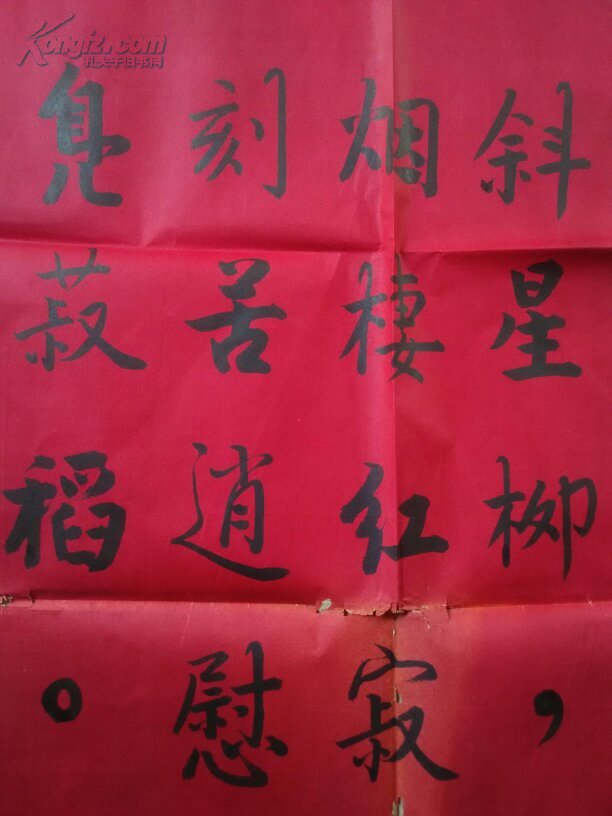 Kongfz.com
孔夫子旧书网
斜星柳，
烟棲红寂
刻苦逍慰
菽稻。